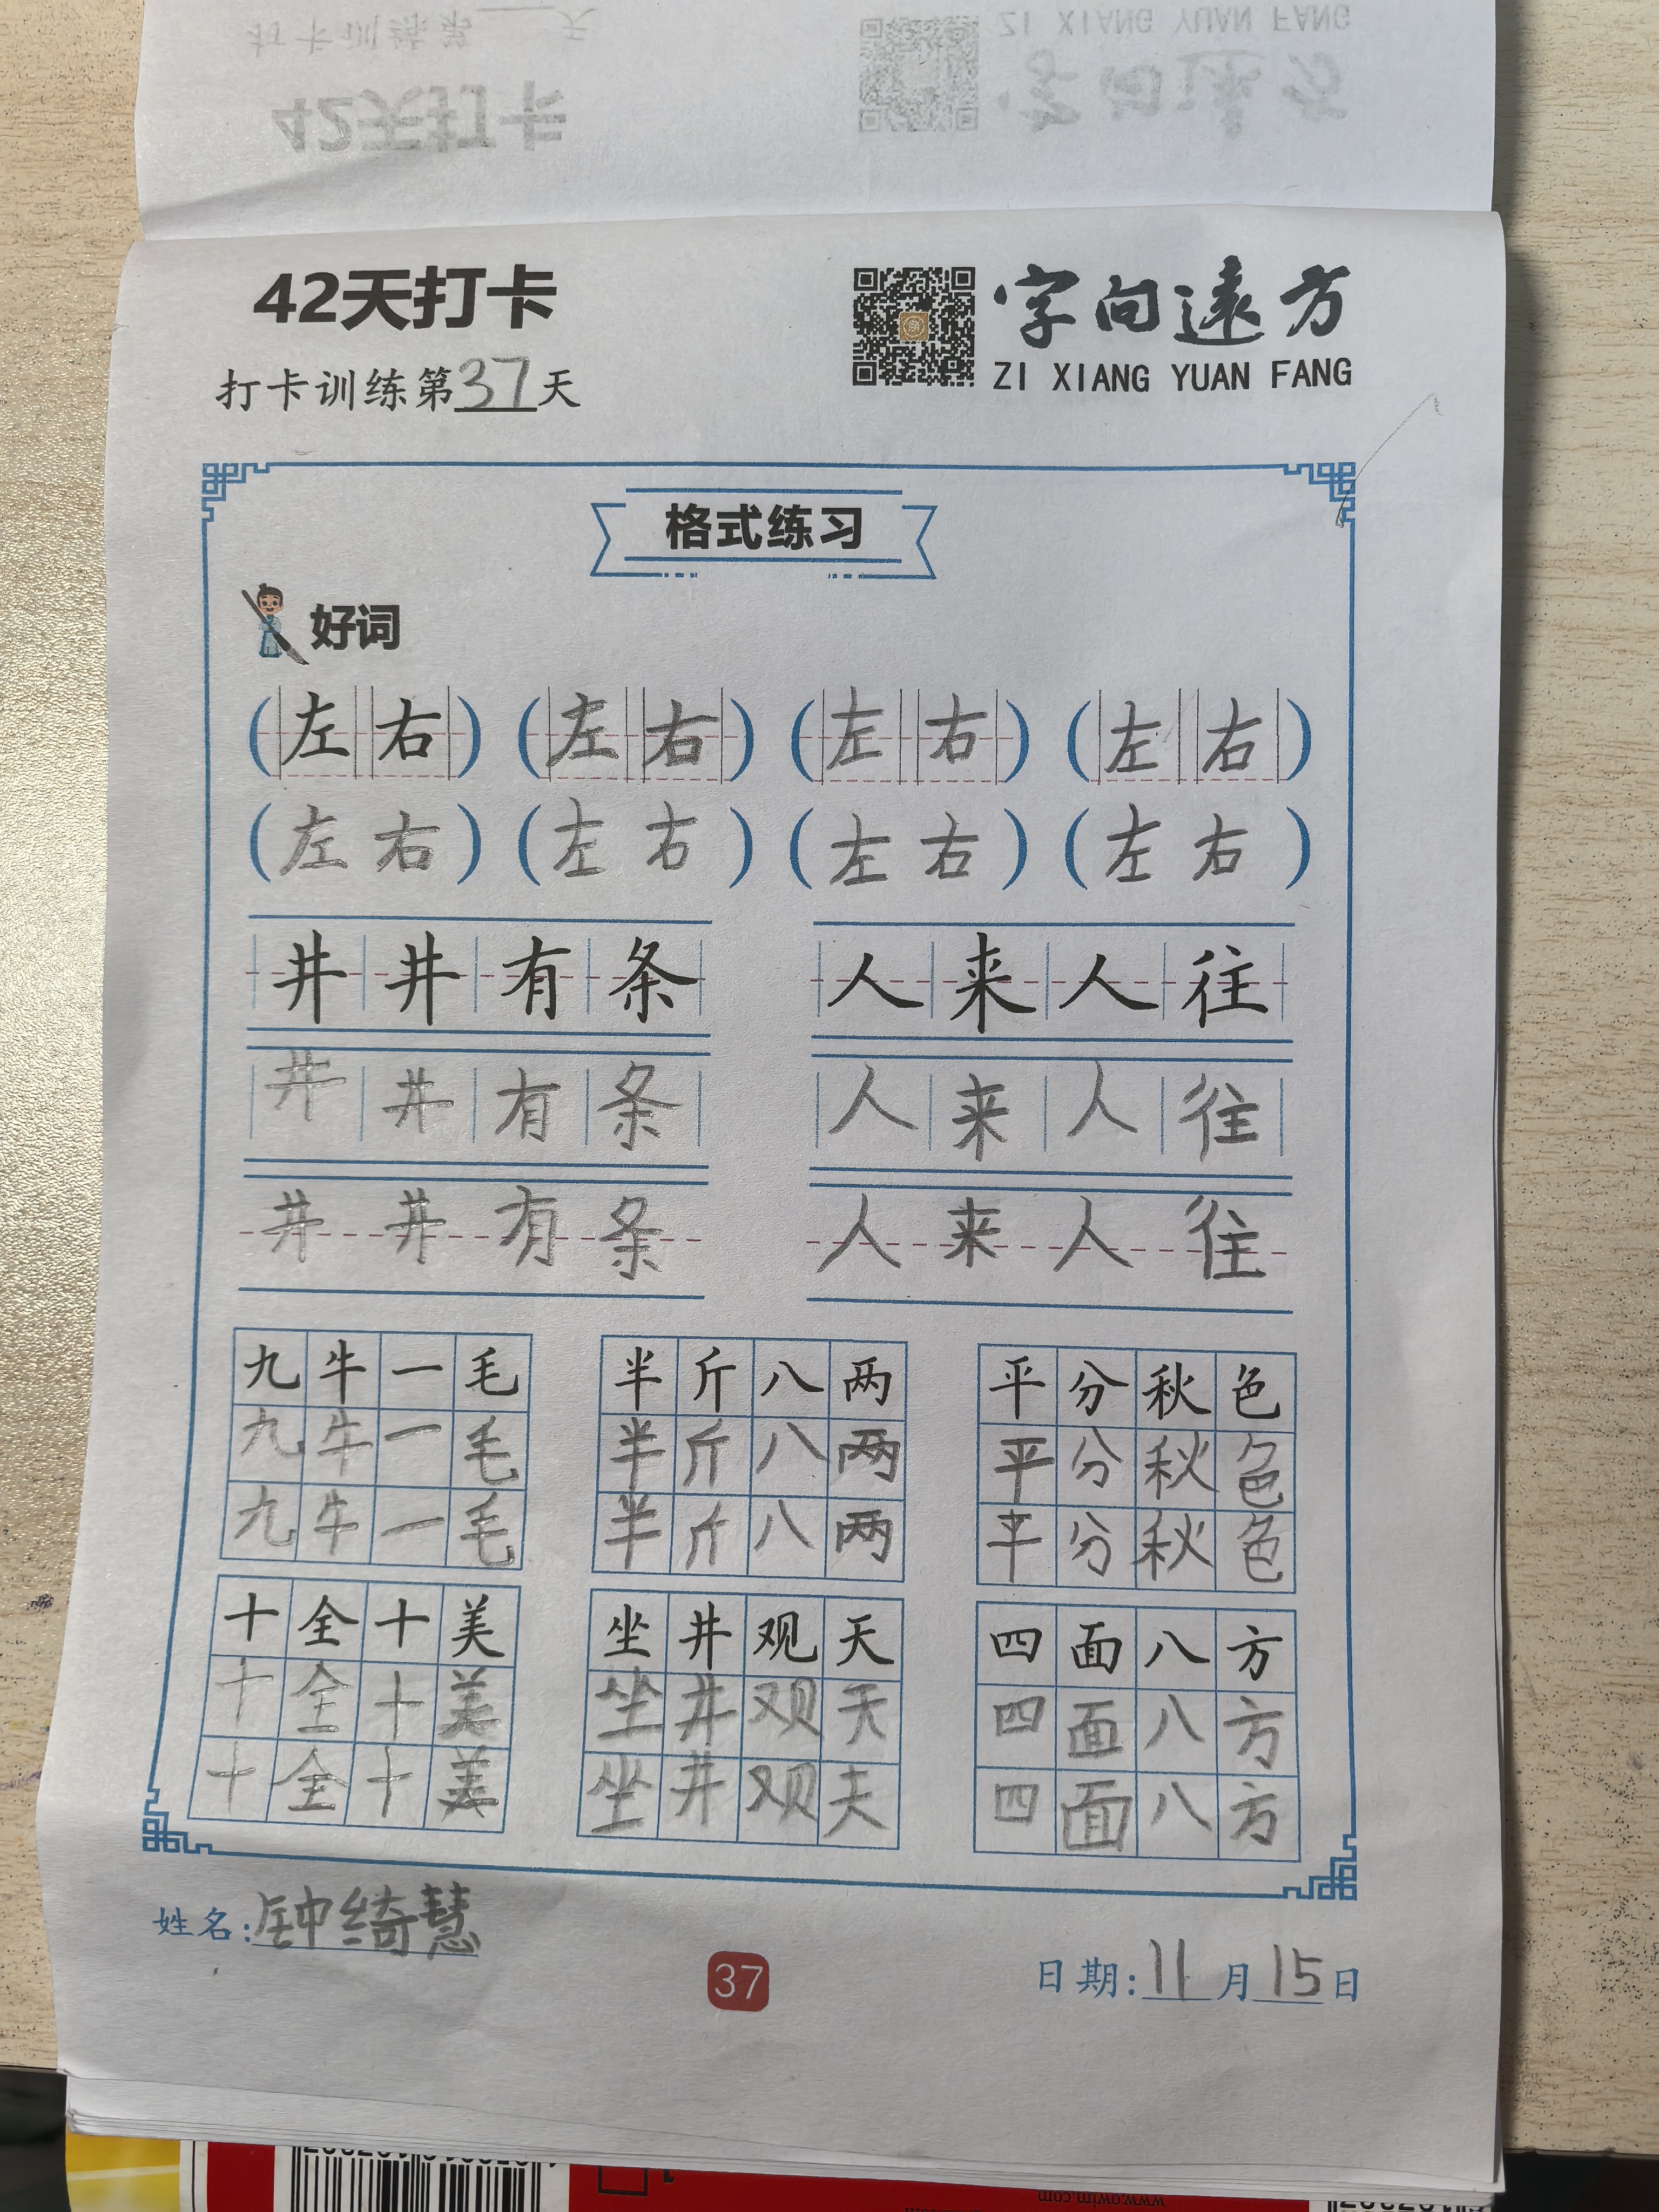 42天打卡
字向遠方
打卡训练第37天
ZI XIANG YUAN FANG
格式练习
好词
(左右) (左右) (左右) (左右)
(左右) (左右) (左右) (左右)
井井有条 人来人往
井井有条 人来人往
井井有条 人来人往
九牛一毛 半斤八两 平分秋色
九牛一毛 半斤八两 平分秋色
九牛一毛 半斤八两 平分秋色
十全十美 坐井观天 四面八方
十全十美 坐井观天 四面八方
十全十美 坐井观夫 四面八方
姓名:钟绮慧
37
日期:11月15日